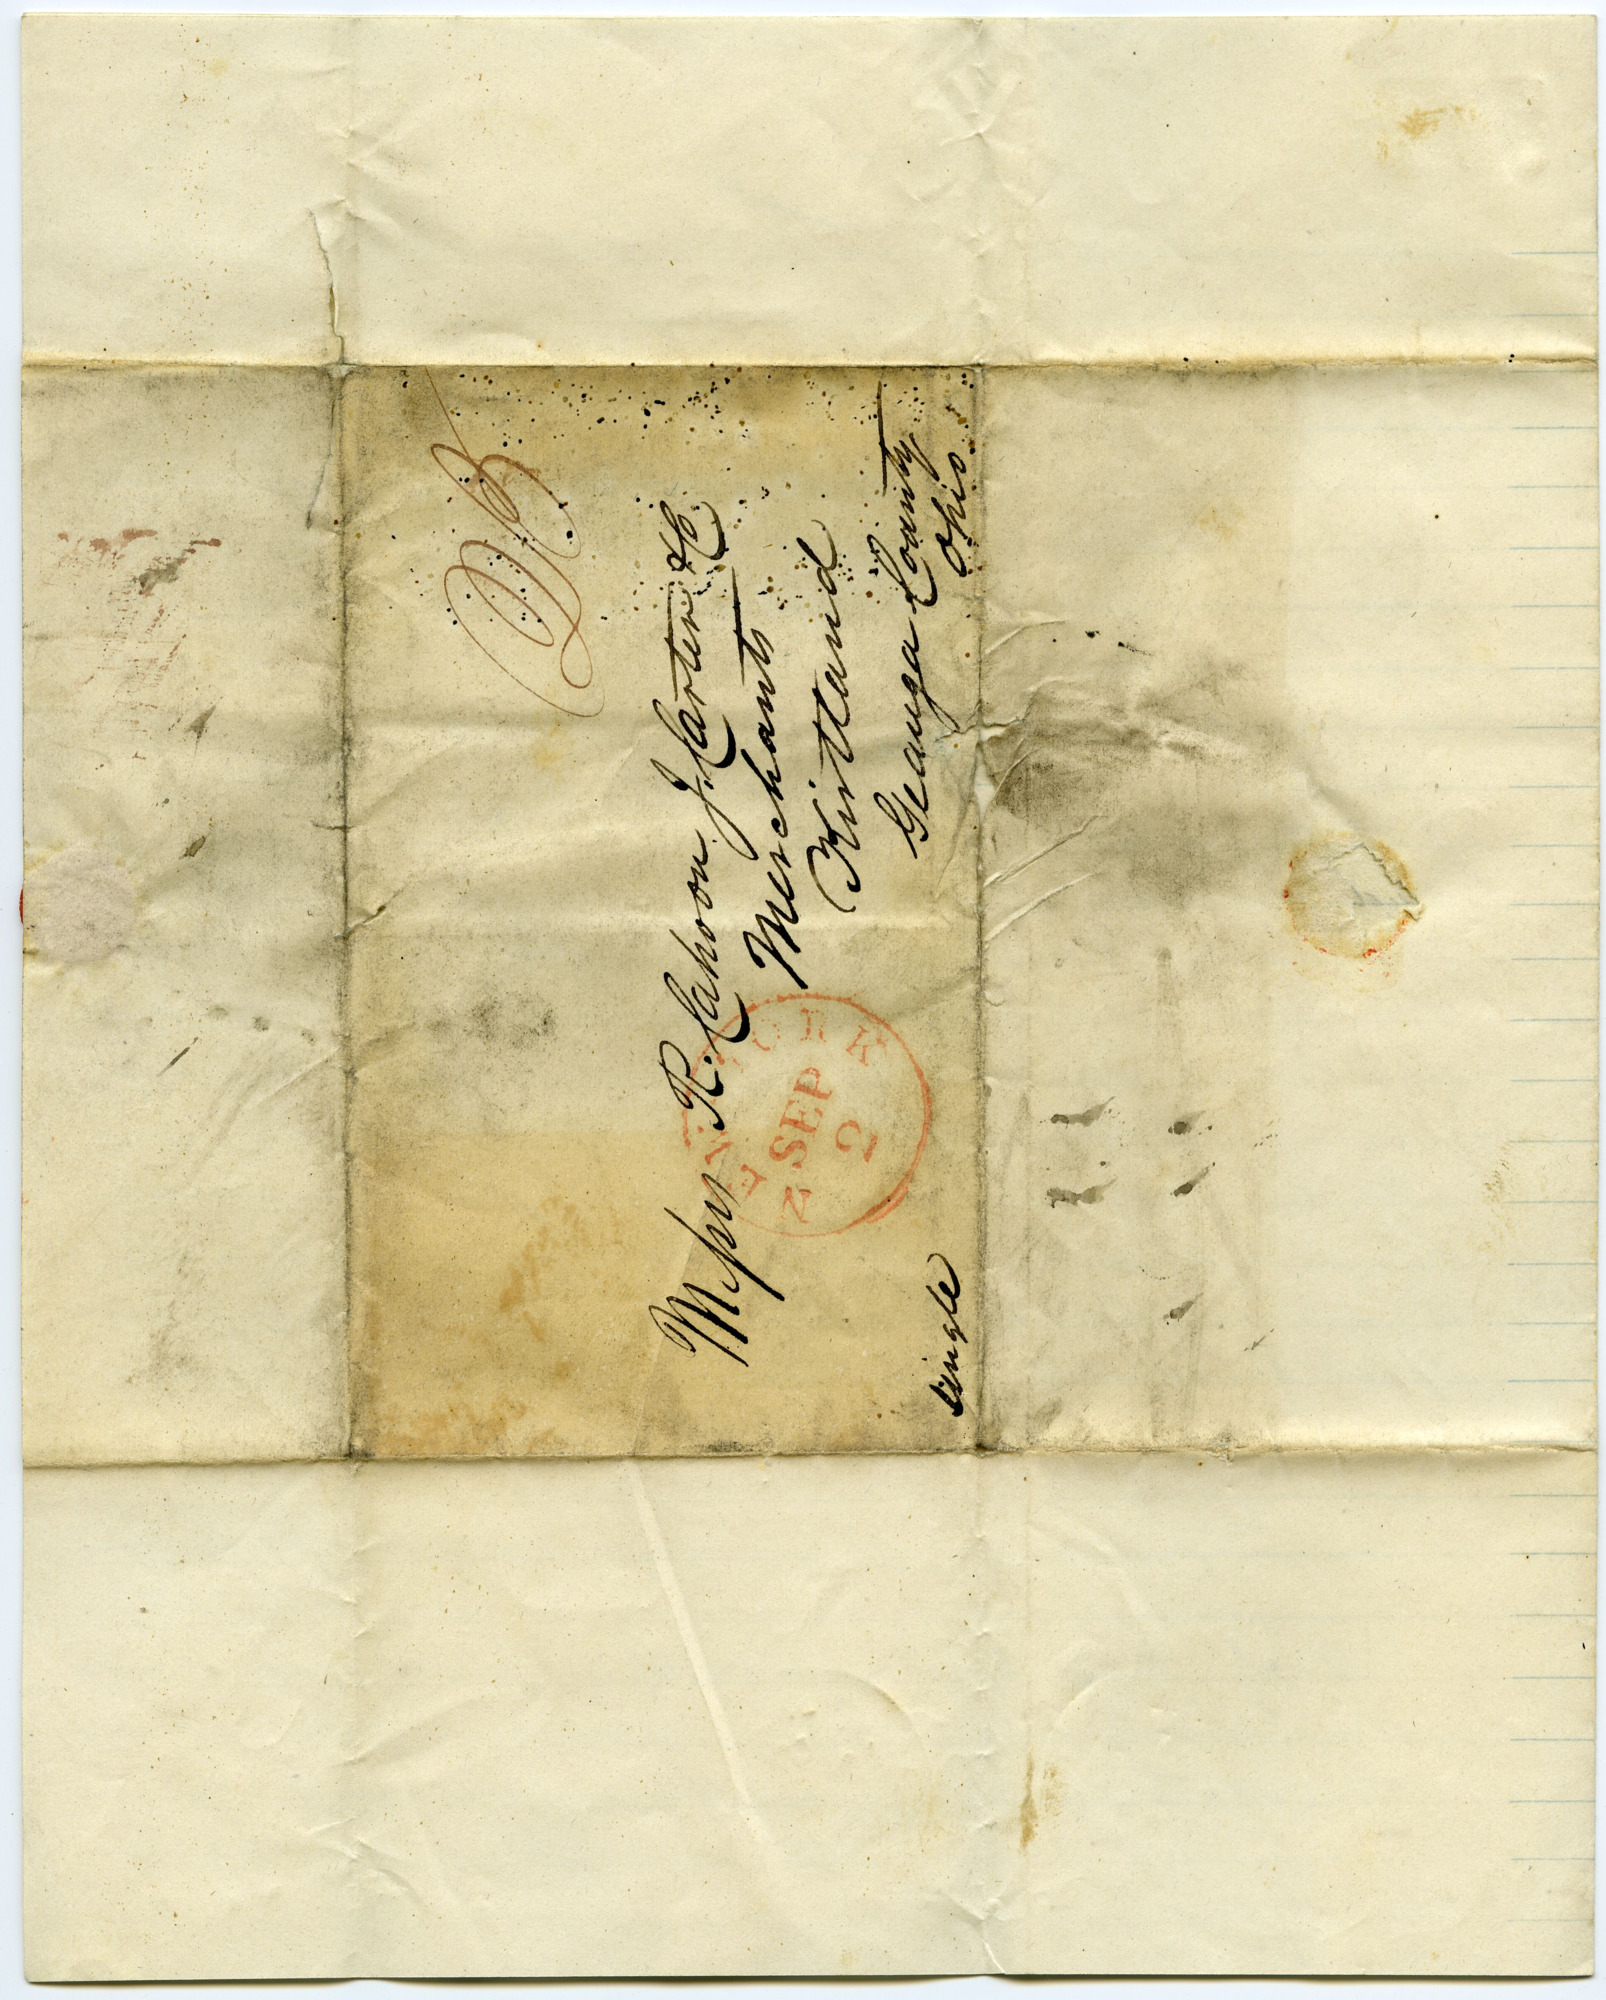 Messrs R. Cahoon J. Carter & C.
Merchants
Kirtland
Geauga County
Ohio.
NEW YORK
SEP
2
single